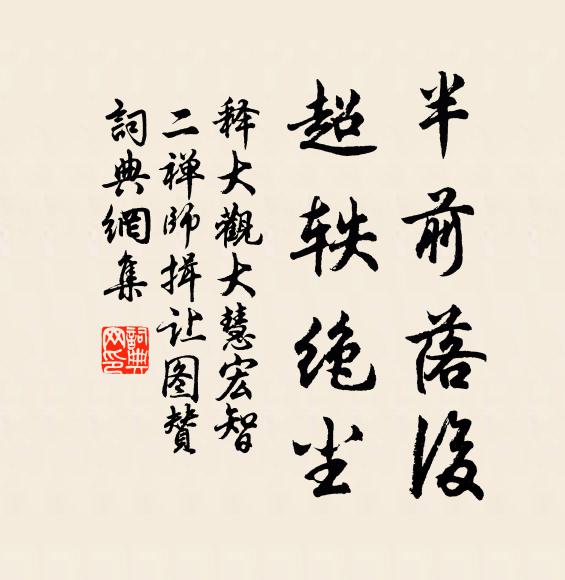 半前落後
超轶绝尘
释大觀大慧宏智
二禅師揖让图赞
詞典網集
詞典網印